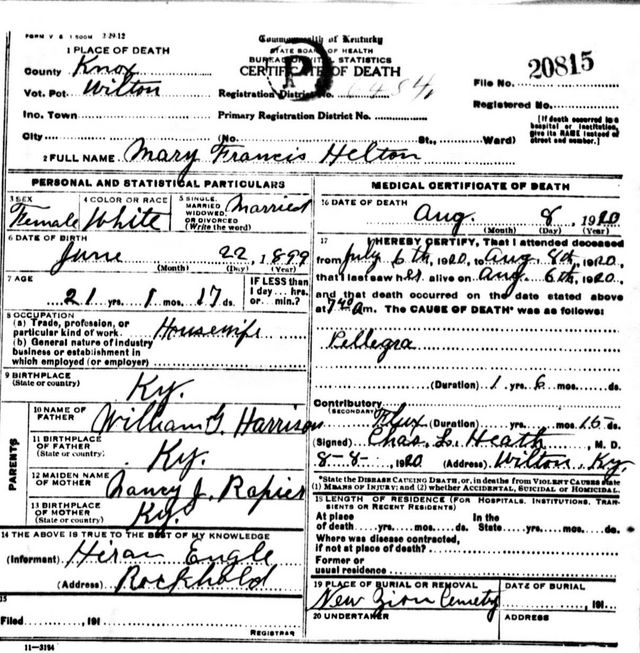 FORM V S 1 500M 2-29-12
Commonwealth of Kentucky
STATE BOARD OF HEALTH
BUREAU OF VITAL STATISTICS
CERTIFICATE OF DEATH
P
1 PLACE OF DEATH
County Knox
Vot. Pct. Wilton
Registration District No.
File No. 20815
Ino. Town
Primary Registration District No.
Registered No.
City (No St., Ward)
[If death occurred in a hospital or institution, give its NAME instead of street and number.]
2 FULL NAME Mary Francis Helton
PERSONAL AND STATISTICAL PARTICULARS
3 SEX Female
4 COLOR OR RACE White
5 SINGLE, MARRIED WIDOWED, OR DIVORCED (Write the word) Married
6 DATE OF BIRTH
June 22, 1899
(Month) (Day) (Year)
7 AGE
21 yrs. 1 mos. 17 ds.
IF LESS than 1 day... hrs. or min.?
8 OCCUPATION
(a) Trade, profession, or particular kind of work. Housewife
(b) General nature of industry business or establishment in which employed (or employer)
9 BIRTHPLACE
(State or country) Ky.
PARENTS
10 NAME OF FATHER William G. Harrison
11 BIRTHPLACE OF FATHER
(State or country) Ky.
12 MAIDEN NAME OF MOTHER Nancy J. Rapier
13 BIRTHPLACE OF MOTHER
(State or country) Ky.
14 THE ABOVE IS TRUE TO THE BEST OF MY KNOWLEDGE
(Informant) Hiram Engle
(Address) Rockhold
15
Filed , 191
REGISTRAR
11-3194
MEDICAL CERTIFICATE OF DEATH
16 DATE OF DEATH
Aug. 8, 1920
(Month) (Day) (Year)
17 I HEREBY CERTIFY, That I attended deceased
from July 6th, 1920, to Aug. 8th, 1920,
that I last saw her alive on Aug. 6th, 1920,
and that death occurred on the date stated above
at m. The CAUSE OF DEATH* was as follows:
Pellegra
(Duration) 1 yrs. 6 mos. ds.
Contributory (SECONDARY) Flux
(Duration) yrs. mos. 15 ds.
(Signed) Chas. L. Heath, M. D.
8-8-, 1920 (Address) Wilton, Ky.
*State the DISEASE CAUSING DEATH, or, in deaths from VIOLENT CAUSES state (1) MEANS OF INJURY; and (2) whether ACCIDENTAL, SUICIDAL OR HOMICIDAL.
18 LENGTH OF RESIDENCE (FOR HOSPITALS, INSTITUTIONS, TRANSIENTS OR RECENT RESIDENTS)
At place of death yrs. mos. ds. In the State yrs. mos. ds.
Where was disease contracted, if not at place of death?
Former or usual residence
19 PLACE OF BURIAL OR REMOVAL New Zion Cemetry
DATE OF BURIAL , 191
20 UNDERTAKER
ADDRESS